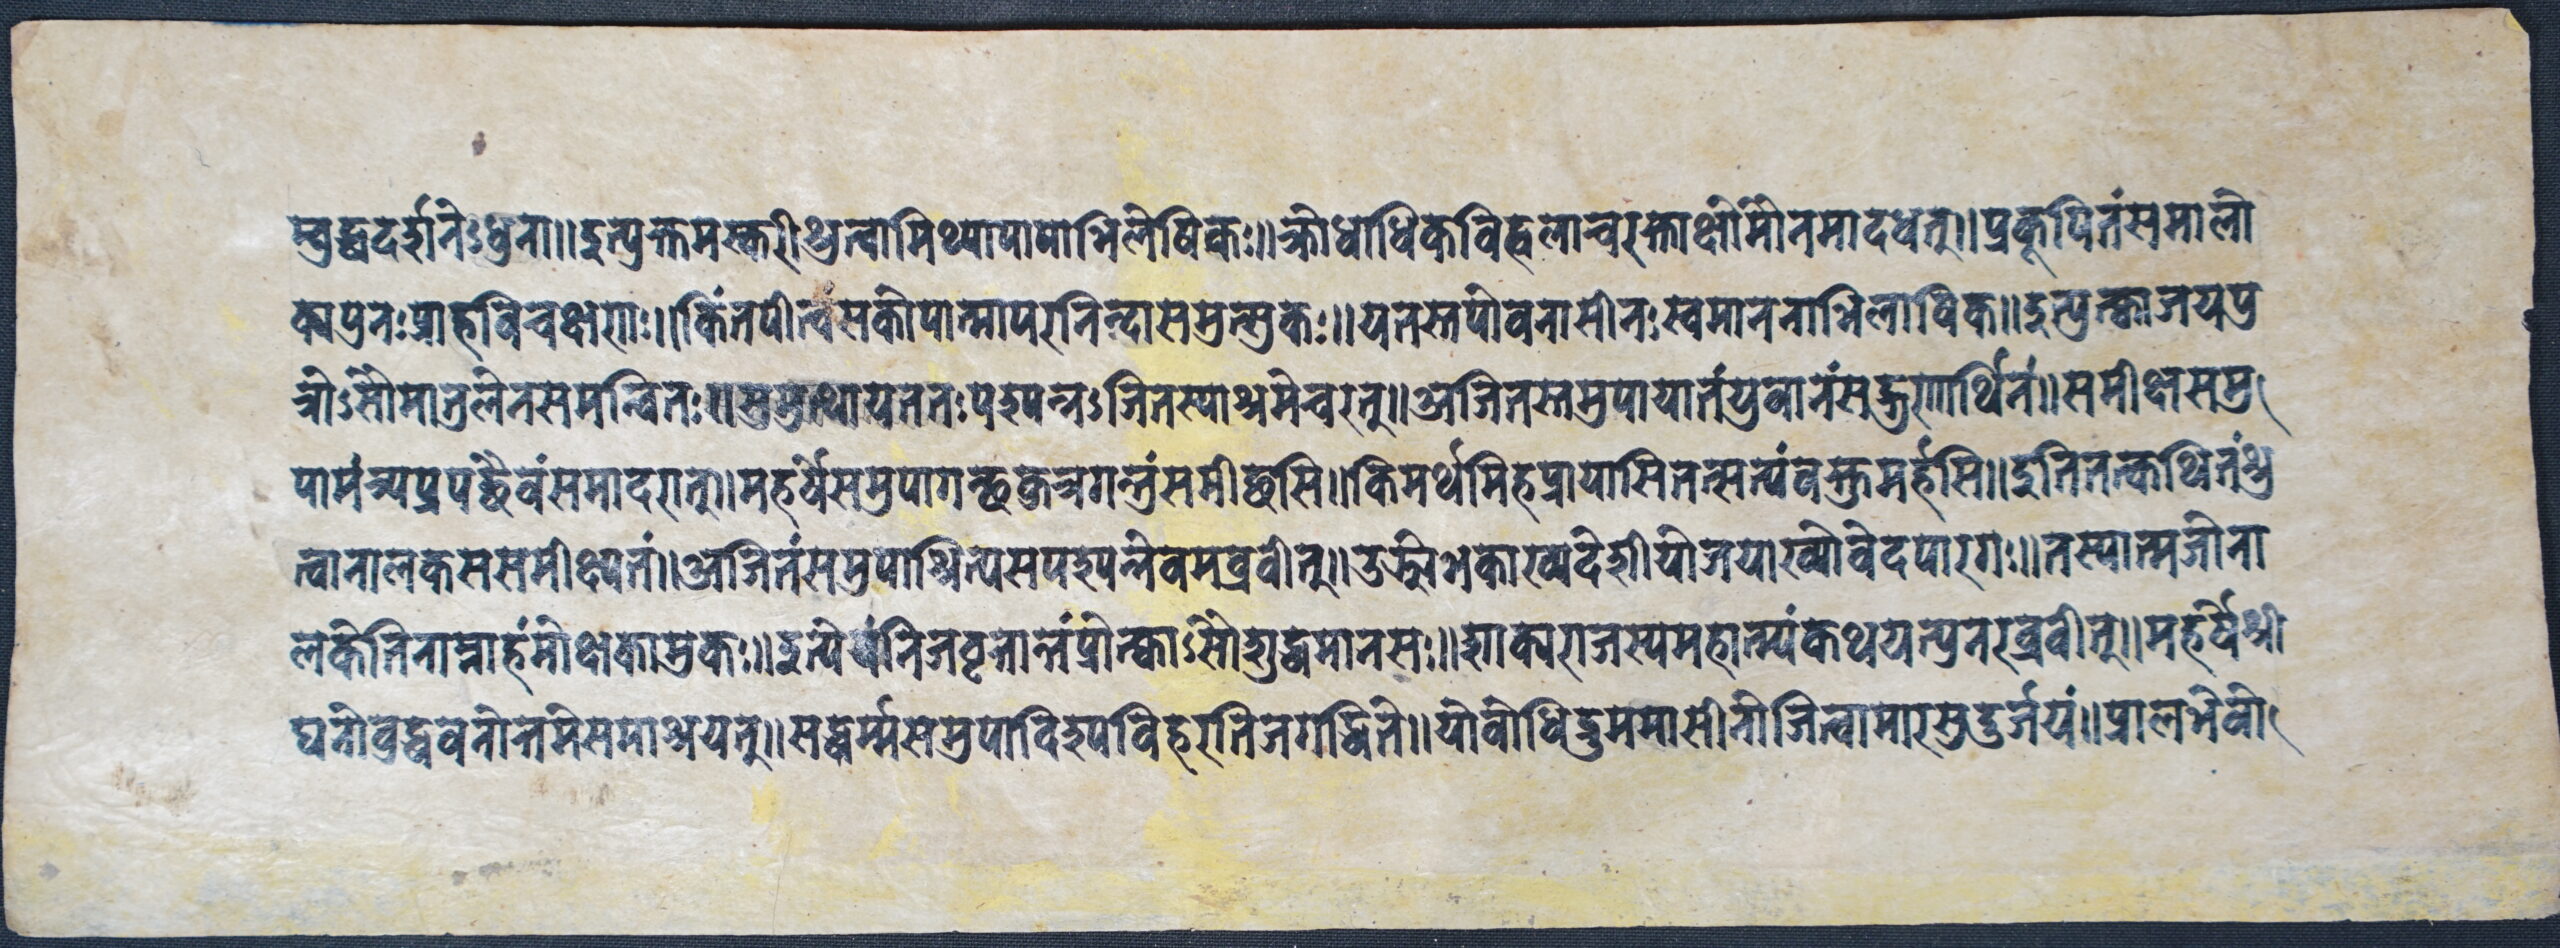 म्बुद्धदर्शनेऽधुना॥इत्युक्तमस्करीश्रुत्वामिथ्यापापाभिलेषिकः॥क्रोधाधिकविह्वलाच्चरक्ताक्षोमौनमादधत्॥प्रकूपितंसमालो
क्यपुनःप्राहविचक्षणः॥किंतपोत्वंसकोपात्मापरनिन्दासमुत्सुकः॥यतस्तपोवनासीनःस्वमाननाभिलाषिक॥इत्युत्क्वाजयपु
त्रोऽसौमातुलेनसमन्वितः॥समुत्थाययततःपश्यन्नऽजितस्याश्रमेचरत्॥अजितस्तमुपायातंयुवानंसद्गुणार्थिनं॥समीक्षसमु
पामंत्र्यप्रपछैवंसमादरात्॥महर्षेसमुपागछकुत्रगन्तुंसमीछसि॥किमर्थमिहप्रायासितत्सत्यंवक्तुमर्हसि॥इतितत्कथितंश्रु
त्वानालकससमीक्ष्यतं॥अजितंसमुपाश्रित्यसपश्यन्नेवमब्रवीत्॥उर्ज्जीभकाख्यदेशीयोजयाख्योवेदपारगः॥तस्यात्मजोना
लकेतिनाम्नाहंमोक्षकामुकः॥इत्येवंनिजवृत्तान्तंप्रोत्क्वाऽसौशुद्धमानसः॥शाक्यराजस्यमहात्म्यंकथयत्पुनरब्रवीत्॥महर्षेश्री
घनोबुद्धवनोत्तमेसमाश्रयत्॥सद्धर्म्मसमुपादिश्यविहरतिजगद्धिते॥योबोधिद्रुममासीनोजित्वामारसुदुर्जयं॥प्रालभेबो